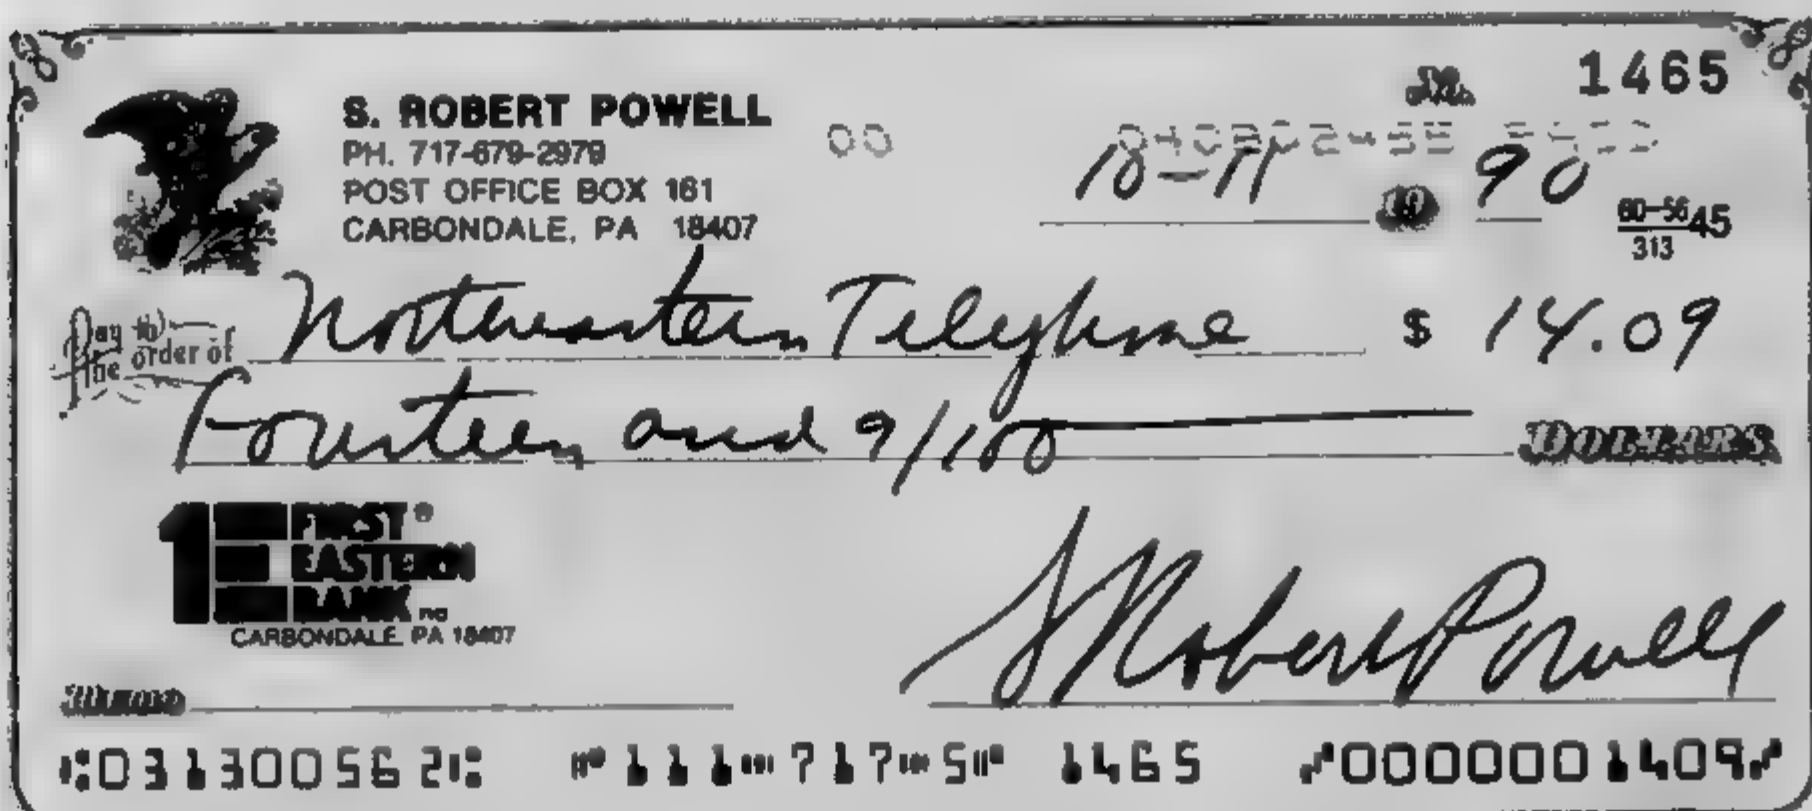 No. 1465
S. ROBERT POWELL
PH. 717-679-2979
POST OFFICE BOX 161
CARBONDALE, PA 18407
00
10-11 19 90
60-56 45
313
Pay to the order of Northeastern Telephone $ 14.09
Fourteen and 9/100 DOLLARS
1 FIRST®
EASTERN
BANK na
CARBONDALE, PA 18407
S Robert Powell
Memo
⑆031300562⑆ ⑈111⑉717⑉5⑈ 1465 ⑇0000001409⑇